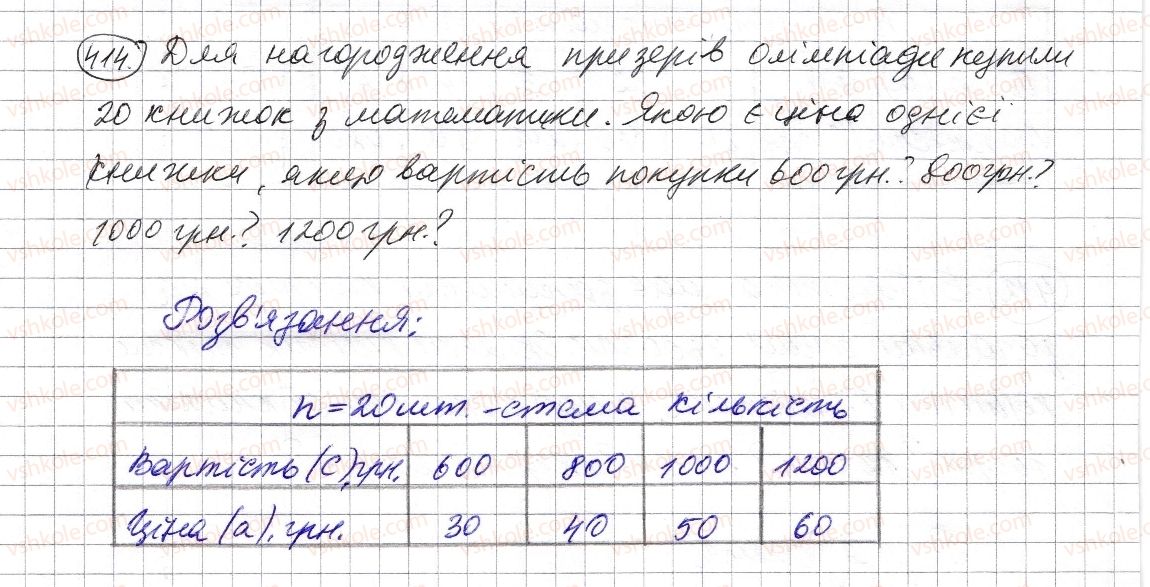 414. Для нагородження призерів олімпіади купили
20 книжок з математики. Якою є ціна однієї
книжки, якщо вартість покупки 600 грн.? 800грн.?
1000 грн.? 1200 грн.?
Розв'язання:
n = 20 шт. - стала кількість
Вартість (С), грн. 600 800 1000 1200
Ціна (а), грн. 30 40 50 60